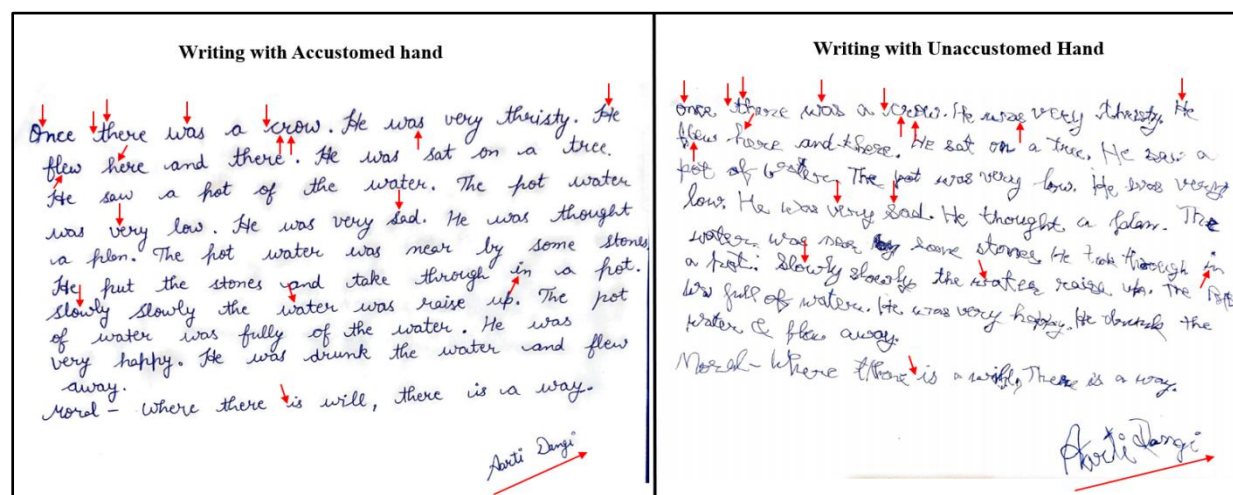 Writing with Accustomed hand
Once there was a crow. He was very thristy. He
flew here and there. He was sat on a tree.
He saw a pot of the water. The pot water
was very low. He was very sad. He was thought
a plen. The pot water was near by some stones
He put the stones and take through in a pot.
slowly slowly the water was raise up. The pot
of water was fully of the water. He was
very happy. He was drunk the water and flew
away.
Morel - where there is will, there is a way.
Aarti Dangi
Writing with Unaccustomed Hand
once there was a crow. He was very thristy. He
flew here and there. He sat on a tree. He saw a
pot of water. The pot was very low. He was very
low. He was very sad. He thought a plan. The
water was near by some stones He took through in
a pot. Slowly slowly the water raise up. The
full of water. He was very happy. He drunk the
water & flew away.
Moral - Where there is a will, There is a way.
Aarti Dangi